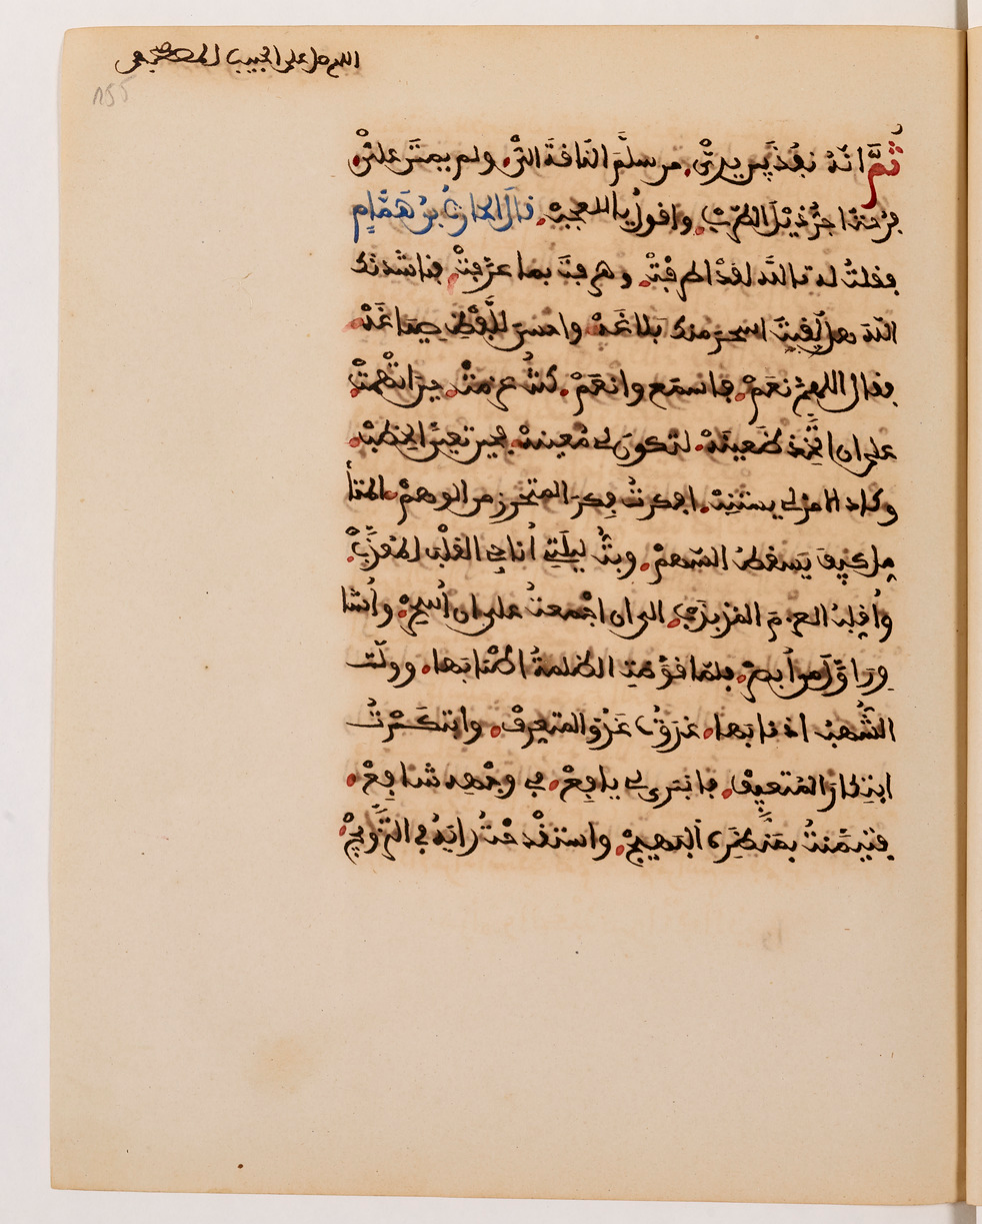 اللهم صل على الحبيب المصطفى
155
ثُمَّ انّهُ نفذ بين يديّْ. من سلَّم الناقةَ اليّْ. ولم يمتنّ عليّْ.
فرُحتُ اجرُّ ذيْلَ الطرَبْ. واقولُ يا للعجبْ. قال الحارثُ بنُ هَمَّامٍ
فقلتُ له تالله لقدْ اطرفْتَ. وهرفتَ بما عرفْتَ. فناشدتك
اللهَ هل لَقِيتَ اسحرَ منك بلاغَهْ. واحسنَ للَّفْظِ صياغَهْ.
فقال اللهمّ نعَمْ. فاستمع وانعَمْ. كنتُ عزمتُ. حين اتْهمتُ.
على ان اتَّخذ ظَعينَهْ. لتكونَ لي مُعينهْ. فحين تعيّنَ الخِطبُ.
وكاد الامرُ لي يستتِبْ. افكرتُ فِكرَ المتحرز من الوهمْ. المتأ
مل كيف يَسقطُ السّهمْ. وبتُّ ليلَتِي أُناجي القلْبَ المعذّبْ.
وأُقلِّبُ العزمَ المذبذبَ. الى ان اجْمعتُ على ان أُسحِرْ. وأُشا
ورَ اوّلَ من أُبصرْ. فلمّا قوّضتِ الظلمةُ اطْنابَها. وولّت
الشُّهبُ اذنابَها. غدَوتُ غدُوّ المتعرِفْ. وابتكَرْتُ
ابتِكارَ المُتعيِّفْ. فانبَرى لي يافِعْ. في وجْهه شافِعْ.
فتيمّنتُ بمَنْظَرِهِ البَهيجْ. واستقْدحْتُ رايَهُ في التّزْويجْ.